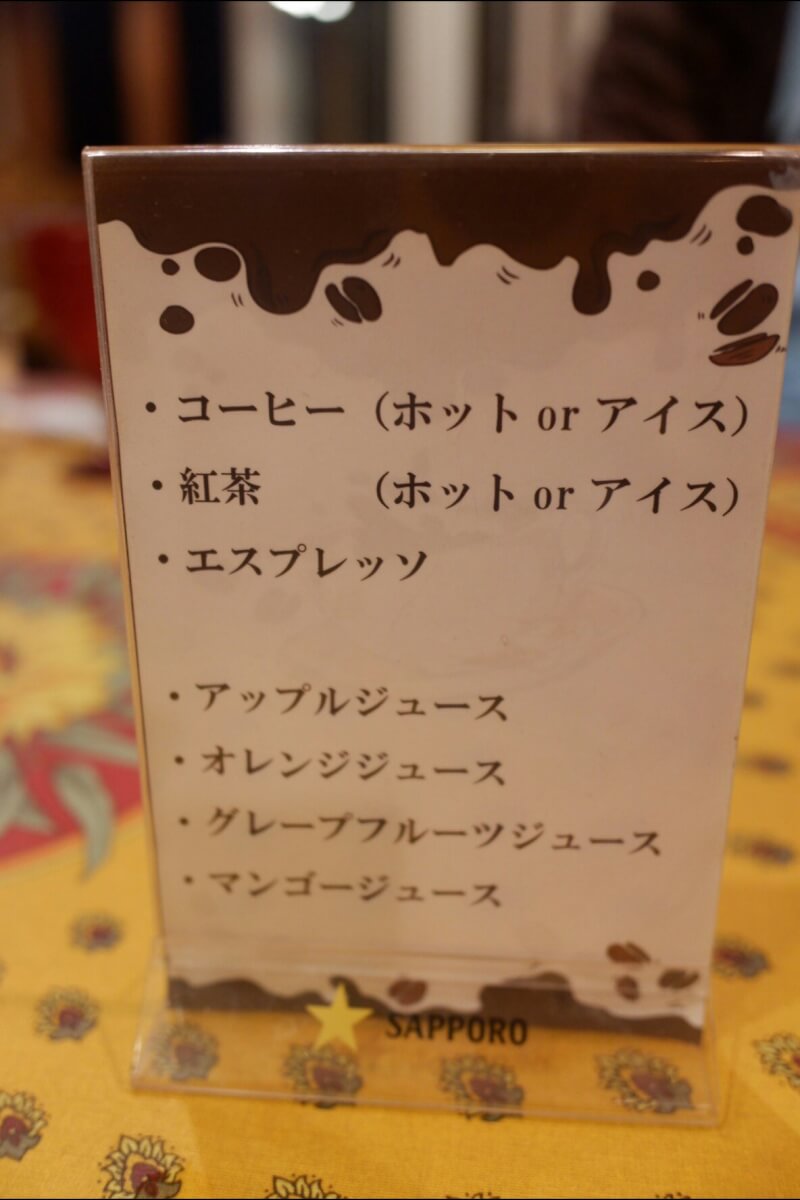 ・コーヒー（ホット or アイス）
・紅茶　　（ホット or アイス）
・エスプレッソ
・アップルジュース
・オレンジジュース
・グレープフルーツジュース
・マンゴージュース
SAPPORO